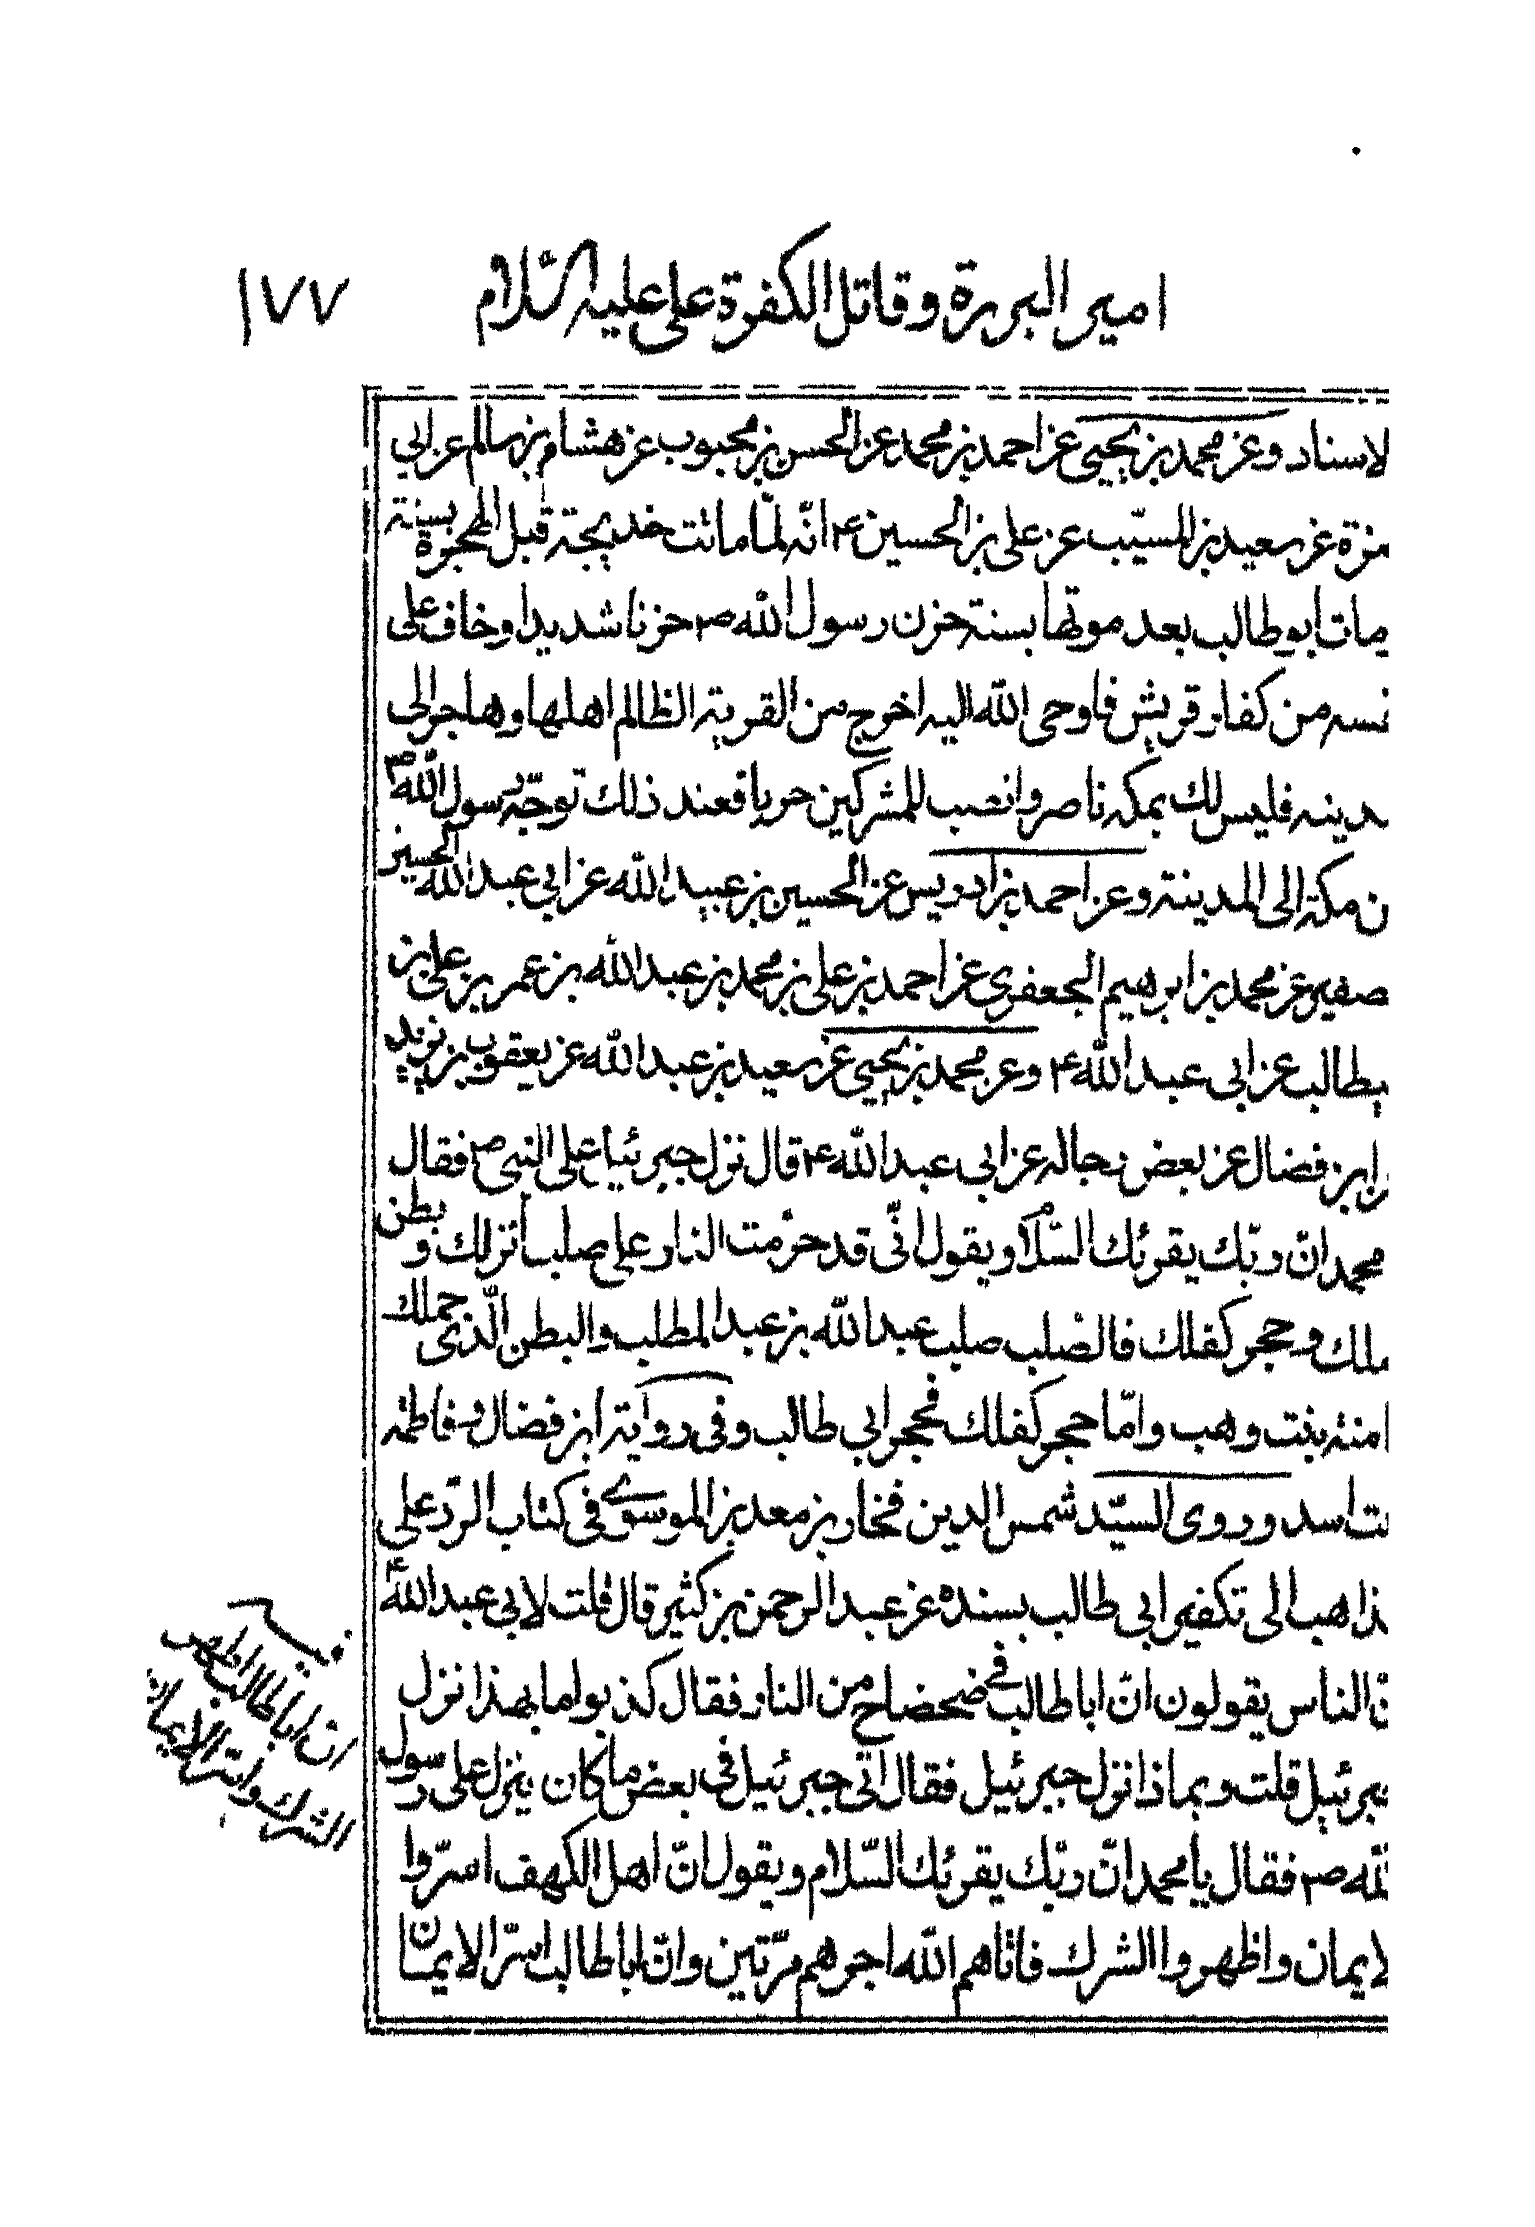 امير البررة وقاتل الكفرة على عليه السّلام ١٧٧
لاسناد وعن محمد بن يحيى عن احمد بن محمد عن الحسن بن محبوب عن هشام بن سالم عن ابي
مزة عن سعيد بن المسيّب عن على بن الحسين ع انّه لمّا ماتت خديجة قبل الهجرة بسنة
ومات ابو طالب بعد موتها بسنة حزن رسول الله ص حزنا شديدا وخاف على
نفسه من كفار قريش فاوحى الله اليه اخرج من القرية الظالم اهلها وهاجر الى
مدينه فليس لك بمكة ناصر وانصب للمشركين حربا فعند ذلك توجّه رسول الله ص
من مكة الى المدينة وعن احمد بن ادريس عن الحسين بن عبيد الله عن ابي عبد الله الحسين
صغير عن محمد بن ابرهيم الجعفري عن احمد بن على بن محمد بن عبد الله بن عمر بن على بن
ابيطالب عن ابي عبد الله ع وعن محمد بن يحيى عن سعيد بن عبد الله عن يعقوب بن يزيد
عن ابن فضال عن بعض رجاله عن ابي عبد الله ع قال نزل جبرئيل ع على النبى ص فقال
محمد انّ ربّك يقرئك السّلام ويقول انّى قد حرّمت النار على صلب أنزلك وبطن
حملك وحجر كفلك فالصّلب صلب عبد الله بن عبد المطلب والبطن الّذى حملك
امنة بنت وهب وامّا حجر كفلك فحجر ابي طالب وفى رواية ابن فضال وفاطمة
بنت اسد وروى السيّد شمس الدين فخار بن معد بن الموسوى فى كتاب الردّ على
الذاهب الى تكفير ابي طالب بسنده عن عبد الرحمن بن كثير قال قلت لابي عبد الله ع
انّ الناس يقولون انّ ابا طالب فى ضحضاح من النار فقال كذبوا ما بهذا نزل
جبرئيل قلت وبما ذا نزل جبرئيل فقال اتى جبرئيل فى بعض ما كان ينزل على رسول
الله ص فقال يا محمد انّ ربّك يقرئك السّلام ويقول انّ اهل الكهف اسرّوا
الايمان واظهروا الشرك فاتاهم الله اجرهم مرّتين وانّ ابا طالب اسرّ الايمان
انّ ابا طالب اظهر
الشرك واسرّ الايمان